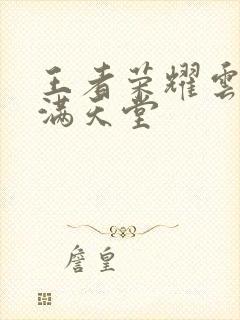 王者荣耀雲
满天堂
詹皇